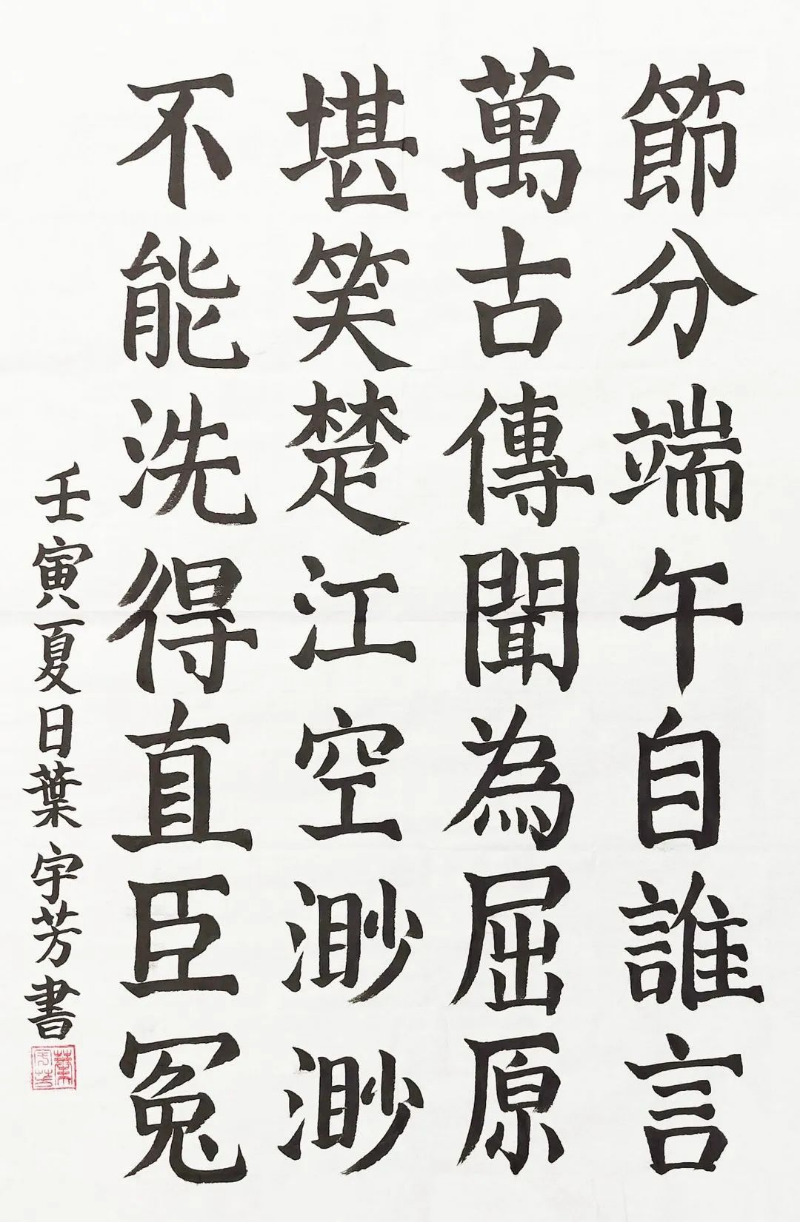 節分端午自誰言
萬古傳聞為屈原
堪笑楚江空渺渺
不能洗得直臣冤
壬寅夏日葉宇芳書